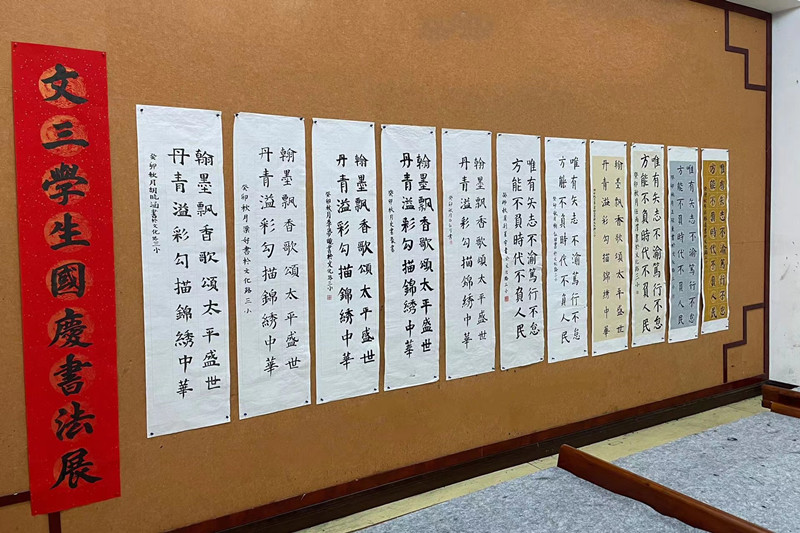 文三學生國慶書法展
翰墨飄香歌頌太平盛世
丹青溢彩勾描錦綉中華
癸卯秋月胡晓涵書於文化路三小
翰墨飄香歌頌太平盛世
丹青溢彩勾描錦綉中華
癸卯秋月梁好書於文化路三小
翰墨飄香歌頌太平盛世
丹青溢彩勾描錦綉中華
癸卯秋月李夢書於文化路三小
翰墨飄香歌頌太平盛世
丹青溢彩勾描錦綉中華
癸卯秋月
翰墨飄香歌頌太平盛世
丹青溢彩勾描錦綉中華
癸卯秋月
唯有矢志不渝篤行不怠
方能不負時代不負人民
癸卯秋月
唯有矢志不渝篤行不怠
方能不負時代不負人民
癸卯秋月
翰墨飄香歌頌太平盛世
丹青溢彩勾描錦綉中華
唯有矢志不渝篤行不怠
方能不負時代不負人民
癸卯秋月
唯有矢志不渝篤行不怠
方能不負時代不負人民
唯有矢志不渝篤行不怠
方能不負時代不負人民